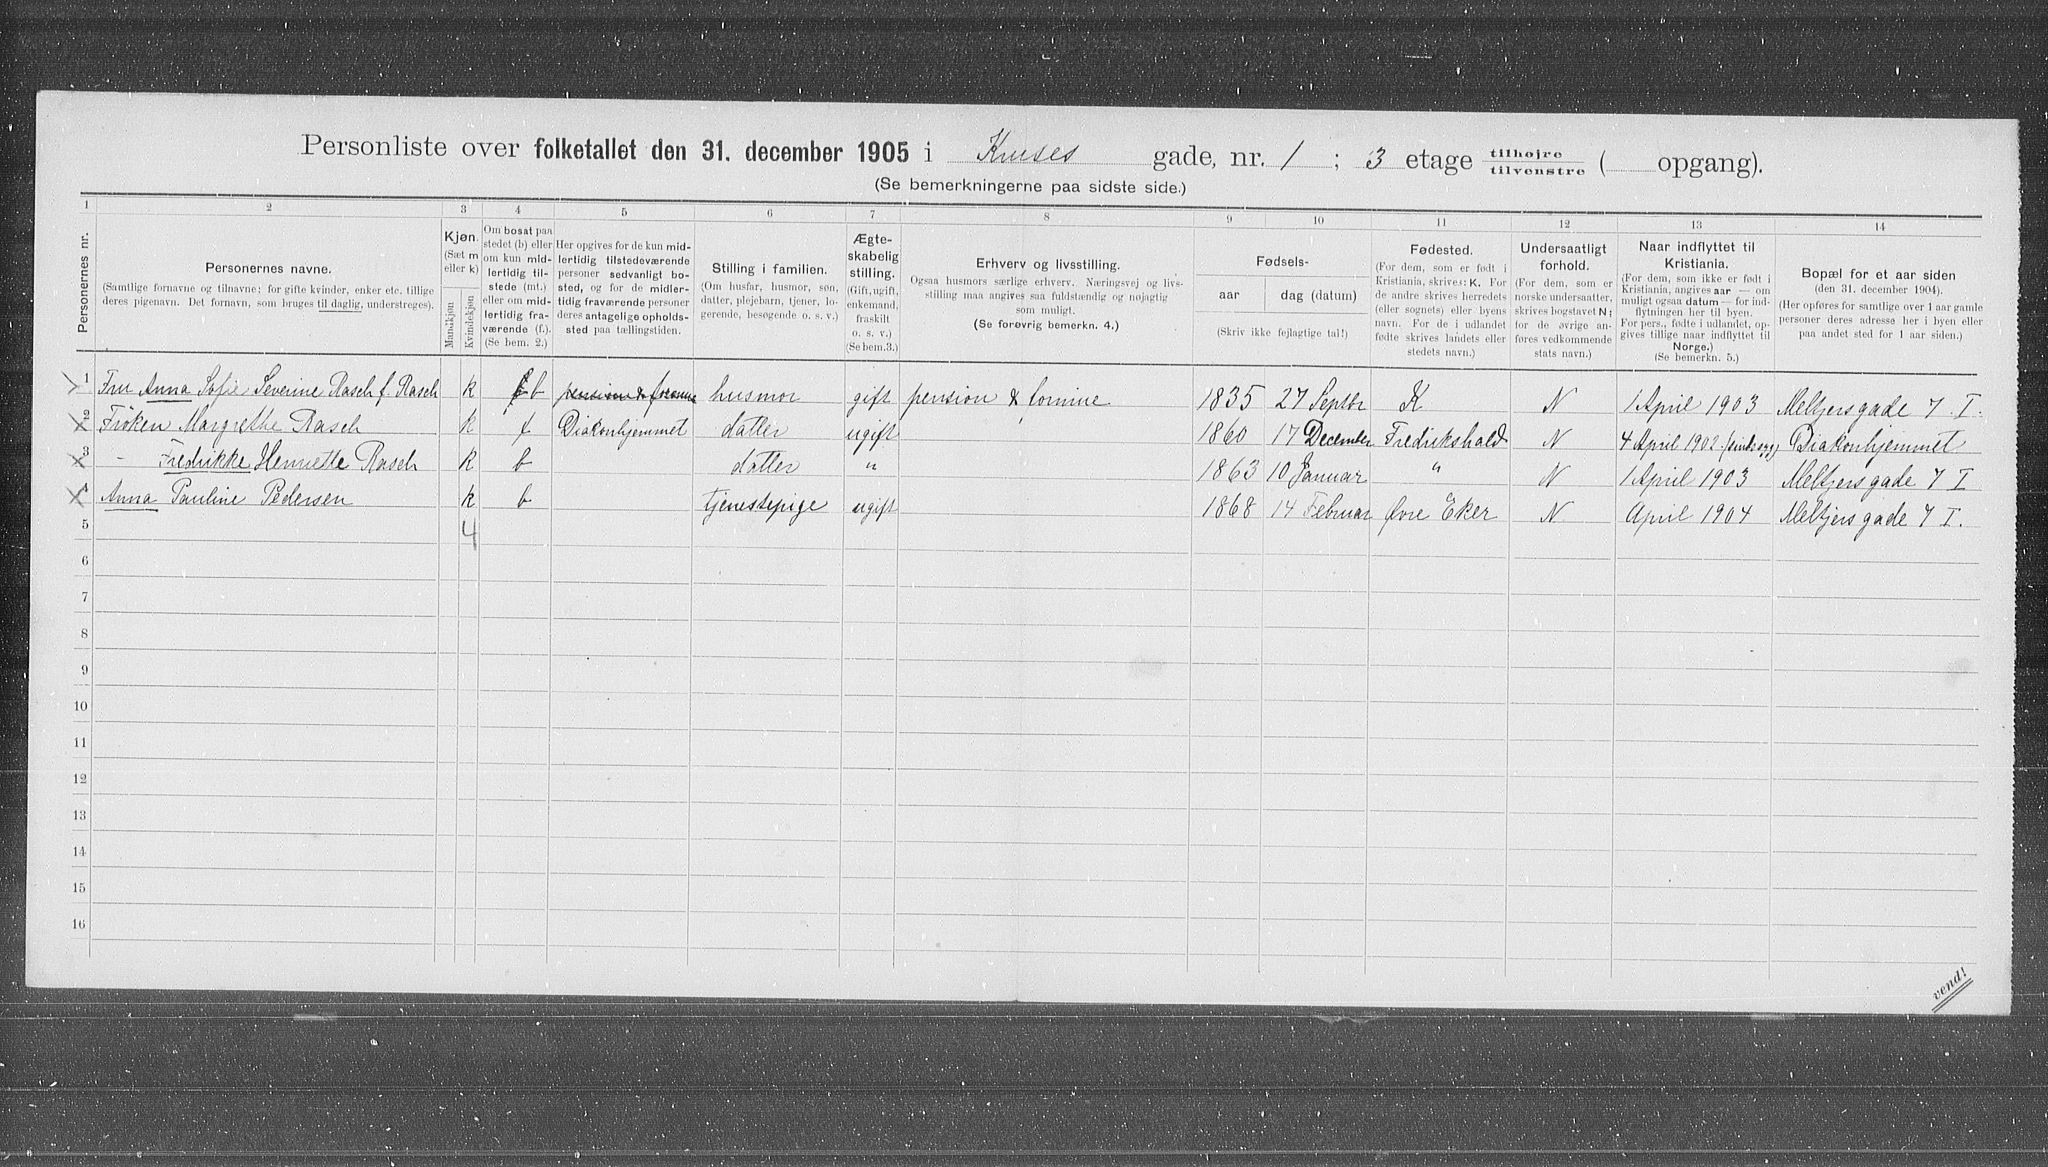 Personliste over folketallet den 31. december 1905 i Kruses gade, nr. 1 ; 3 etage tilhøjre tilvenstre ( opgang).
(Se bemerkningerne paa sidste side.)
1 2 3 4 5 6 7 8 9 10 11 12 13 14
Personernes nr.
Personernes navne.
(Samtlige fornavne og tilnavne; for gifte kvinder, enker etc. tillige deres pigenavn. Det fornavn, som bruges til daglig, understreges).
Kjøn.
(Sæt m eller k)
Mandkjøn
Kvindekjøn
Om bosat paa stedet (b) eller om kun midlertidig tilstede (mt.) eller om midlertidig fraværende (f.). (Se bem. 2.)
Her opgives for de kun midlertidig tilstedeværende personer sedvanligt bosted, og for de midlertidig fraværende personer deres antagelige opholdssted paa tællingstiden.
Stilling i familien.
(Om husfar, husmor, søn, datter, plejebarn, tjener, logerende, besøgende o. s. v.)
Ægteskabelig stilling.
(Gift, ugift, enkemand, fraskilt o. s. v.)
(Se bem.3.)
Erhverv og livsstilling.
Ogsaa husmors særlige erhverv. Næringsvej og livsstilling maa angives saa fuldstændig og nøjagtig som muligt.
(Se forøvrig bemerkn. 4.)
Fødsels-
aar
dag (datum)
(Skriv ikke fejlagtige tal!)
Fødested.
(For dem, som er født i Kristiania, skrives: K. For de andre skrives herredets (eller sognets) eller byens navn. For de i udlandet fødte skrives landets eller stedets navn.)
Undersaatligt forhold.
(For dem, som er norske undersaatter, skrives bogstavet N; for de øvrige anføres vedkommende stats navn.)
Naar indflyttet til Kristiania.
(For dem, som ikke er født i Kristiania, angives aar — om muligt ogsaa datum — for indflytningen her til byen. For pers., fødte i udlandet, opgives tillige naar indflyttet til Norge.)
(Se bemerkn. 5.)
Bopæl for et aar siden
(den 31. december 1904).
(Her opføres for samtlige over 1 aar gamle personer deres adresse her i byen eller paa andet sted for 1 aar siden.)
1 Fru Anna Sofie Severine Rasch f. Rasch k b husmor gift pension & 1835 27 Septbr K N 1 April 1903 Meltzersgade 7 I.
2 Frøken Margrethe Rasch k f Diakonhjemmet datter ugift 1860 17 December Fredrikshald N 4 April 1902 Diakonhjemmet
3 - Fredrikke Henriette Rasch k b datter " 1863 10 Januar " N 1 April 1903 Meltzersgade 7 I
4 Anna Pauline Pedersen k b tjenestepige ugift 1868 14 Februar Øvre Eker N April 1904 Meltzers gade 7 I.
5 4
6
7
8
9
10
11
12
13
14
15
16
vend!